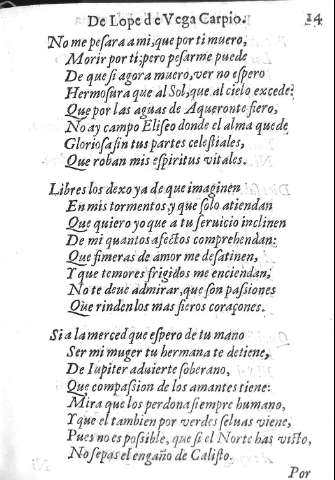 De Lope de Vega Carpio. 14
No me peſara a mi, que por ti muero,
Morir por ti; pero peſarme puede
De que ſi agora muero, ver no eſpero
Hermoſura que al Sol, que al cielo excede:
Que por las aguas de Aqueronte fiero,
No ay campo Eliſeo donde el alma quede
Glorioſa ſin tus partes celeſtiales,
Que roban mis eſpiritus vitales.
Libres los dexo ya de que imaginen
En mis tormentos, y que ſolo atiendan
Que quiero yo que a tu ſeruicio inclinen
De mi quantos afectos comprehendan:
Que fimeras de amor me deſatinen,
Y que temores frigidos me enciendan,
No te deue admirar, que ſon paſsiones
Que rinden los mas fieros coraçones.
Si a la merced que eſpero de tu mano
Ser mi muger tu hermana te detiene,
De Iupiter aduierte ſoberano,
Que compaſsion de los amantes tiene:
Mira que los perdona ſiempre humano,
Y que el tambien por verdes ſeluas viene,
Pues no es poſsible, que ſi el Norte has viſto,
No ſepas el engaño de Caliſto.
Por